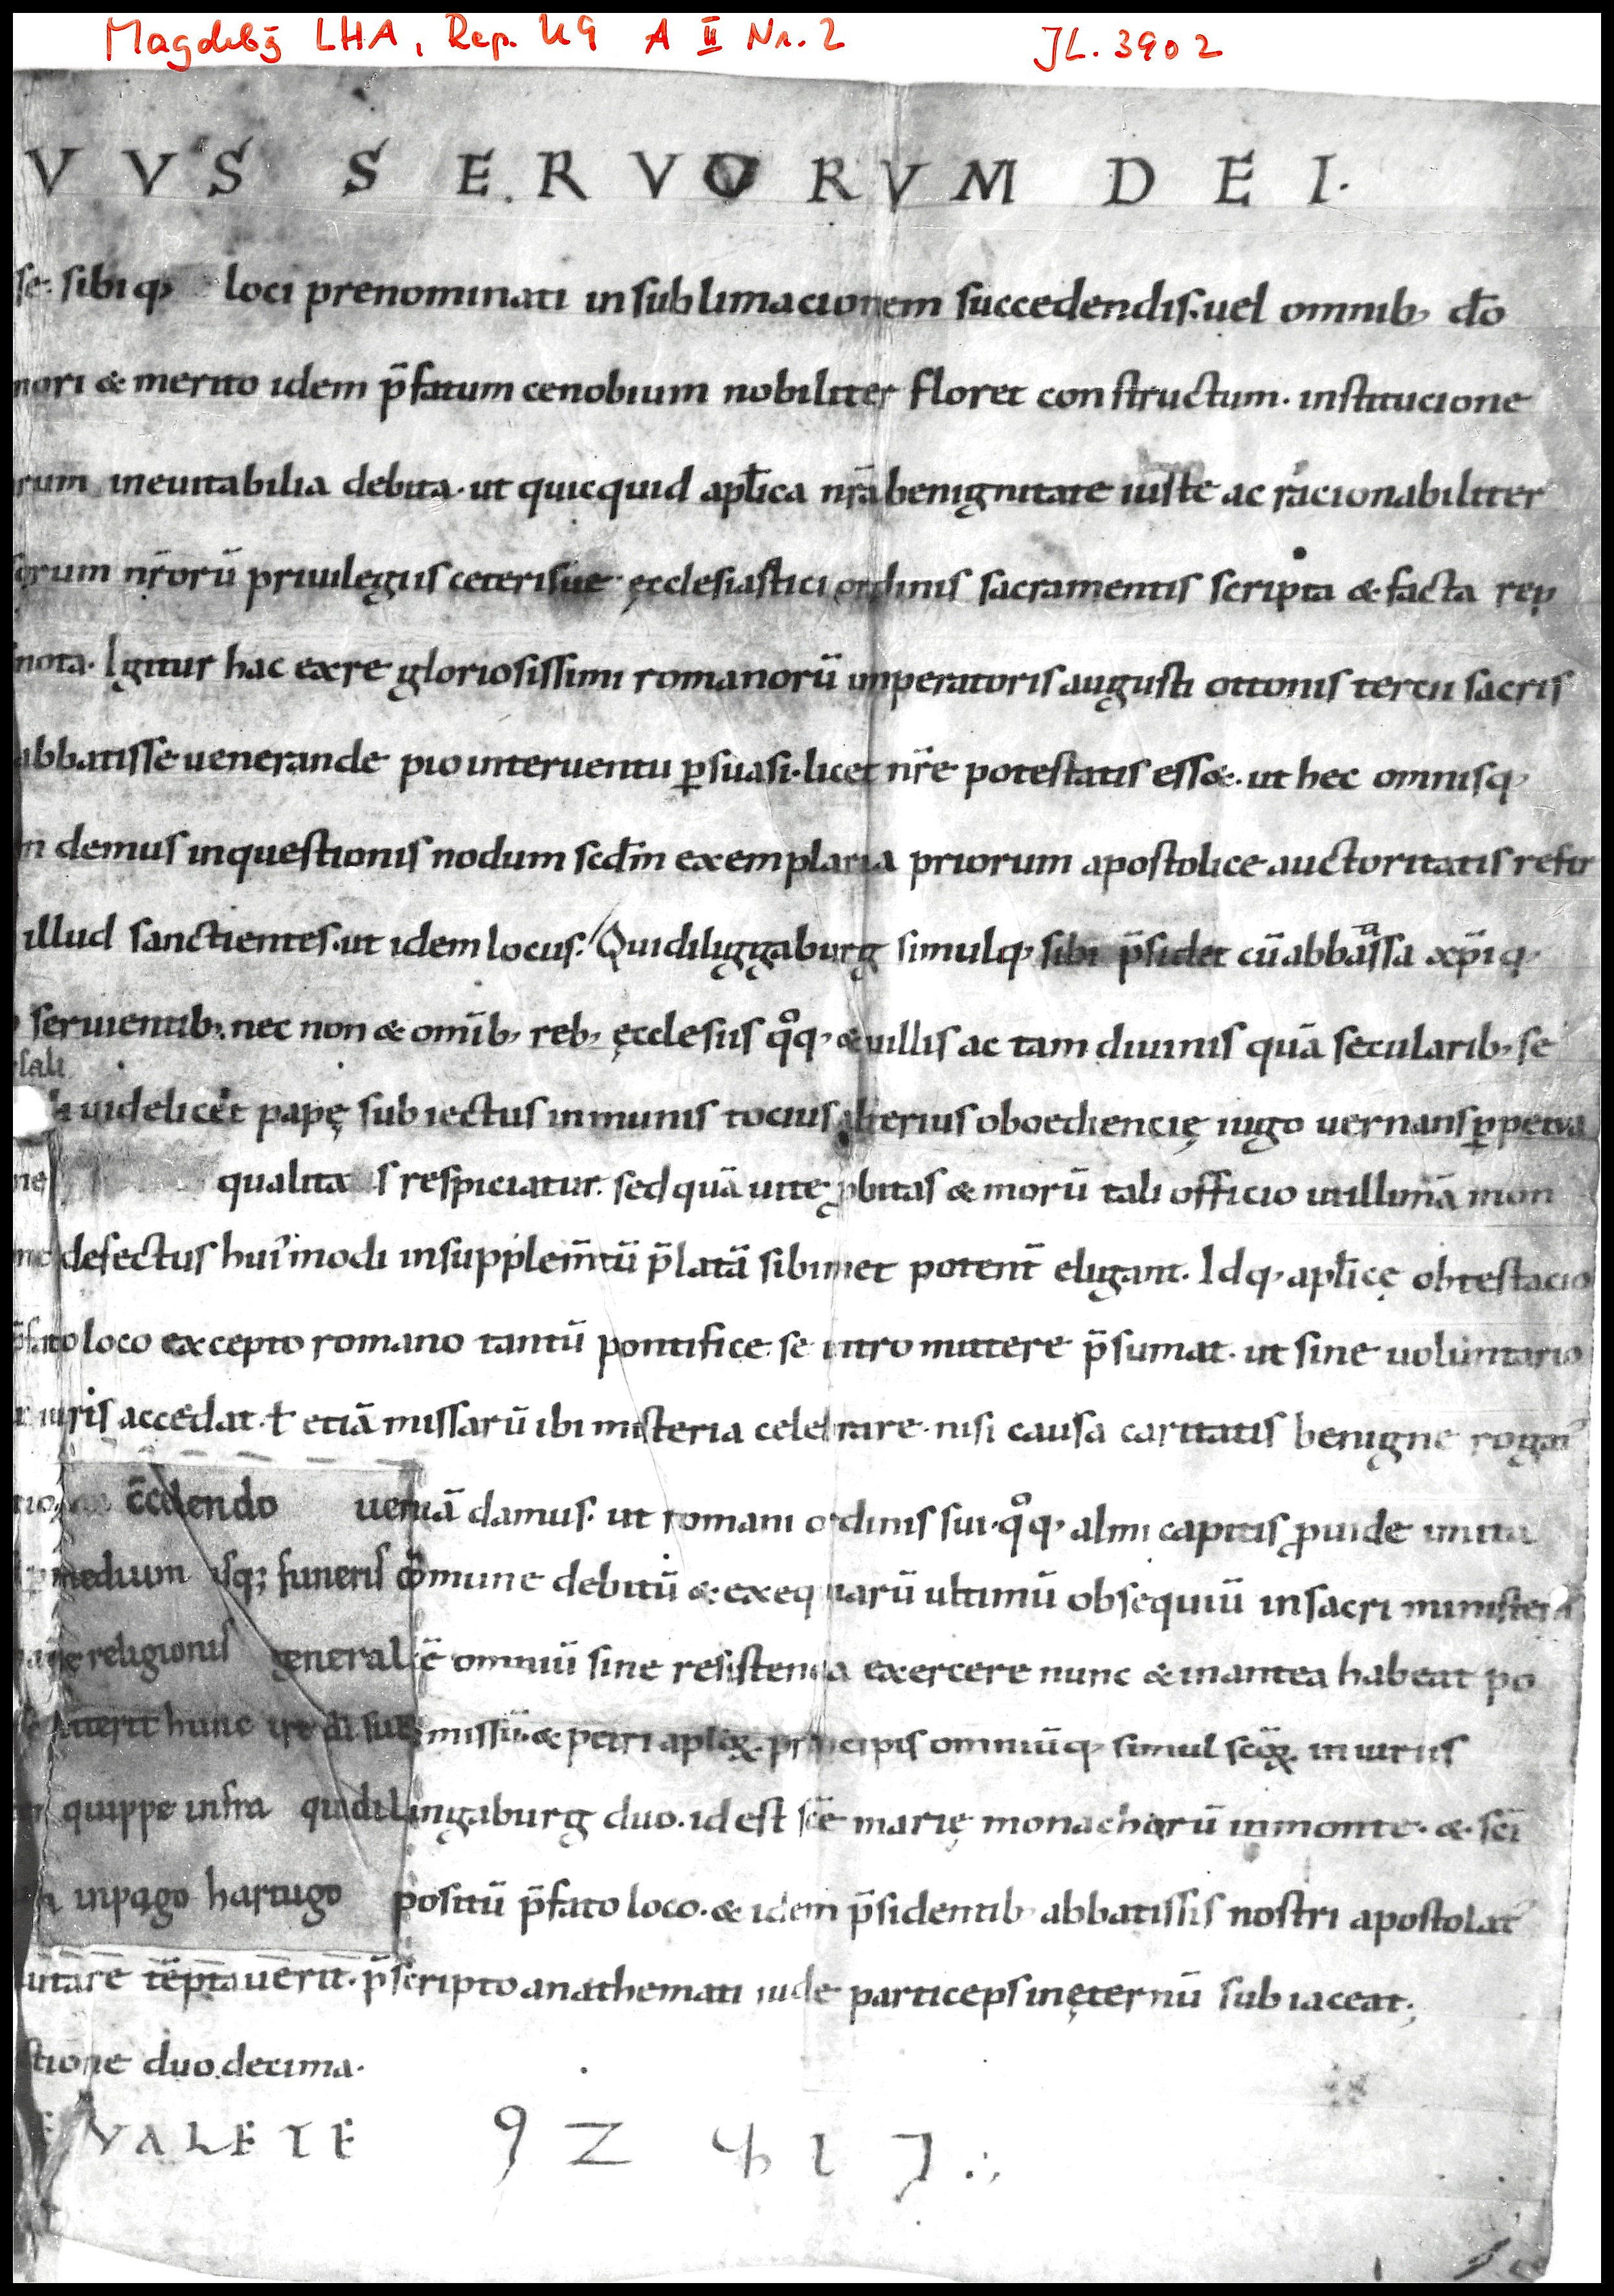 Magdebg LHA, Rep. U9 A II Nr. 2 JL. 3902
V V S S E R V O R V M D E I .
se. sibi q; loci prenominati in sublimacionem succedendis. uel omnib; dō
nori & merito idem p̄fatum cenobium nobiliter floret constructum. institucione
rum ineuitabilia debita. ut quicquid apl̄ica nr̄a benignitate iuste ac racionabiliter
sorum nr̄orū priuilegiis ceterisue ęcclesiastici ordinis sacramentis scripta & facta rep
nota. Igitur hac ex re gloriosissimi romanorū imperatoris augusti ottonis tercii sacris
abbatisse uenerande pio interuentu ꝑsuasi. licet nr̄e potestatis ess&. ut hec omnisq;
n demus in questionis nodum scd̄m exemplaria priorum apostolice auctoritatis refir
illud sanctientes. ut idem locus. Quidiliggaburg simulq; sibi p̄sidet cū abbassa xp̄iq;
seruientib; nec non & om̄ib; reb; ęcclesiis qͦq; & uillis ac tam diuinis quā secularib; se
sali
uidelicet papę subiectus inmunis tocius alterius oboediencię iugo uernans ꝑpetua
ne qualitas respiciatur. sed quā uite ꝓbitas & morū tali officio utillimā mon
defectus hui'modi in supplem̄tū p̄latā sibimet potent̄ eligant. Idq; apl̄icę obtestacio
p̄fato loco excepto romano tantū pontifice. se intromittere p̄sumat. ut sine uoluntario
iuris accedat. ł etiā missarū ibi misteria celebrare. nisi causa caritatis benigne rogat'
c̄cedendo ueniā damus. ut romani ordinis sui. qͦq; almi capitis ꝓuide imita
medium usq; funeris cōmune debitū & exequiarū ultimū obsequiū in sacri ministerii
religionis generalē omniū sine resistencia exercere nunc & in antea habeat po
uerit hunc ire dī sue missū. & petri aplōꝝ principis omniūq; simul scōꝝ. in uirtis
quippe infra quidilingaburg duo. id est scē marię monacharū in monte. & scī
in pago hartugo positū p̄fato loco. & idem p̄sidentib; abbatissis nostri apostolat'
utare tēptauerit. p̄scripto anathemati iude particeps in ęternū subiaceat;
stione duodecima.
VALETE